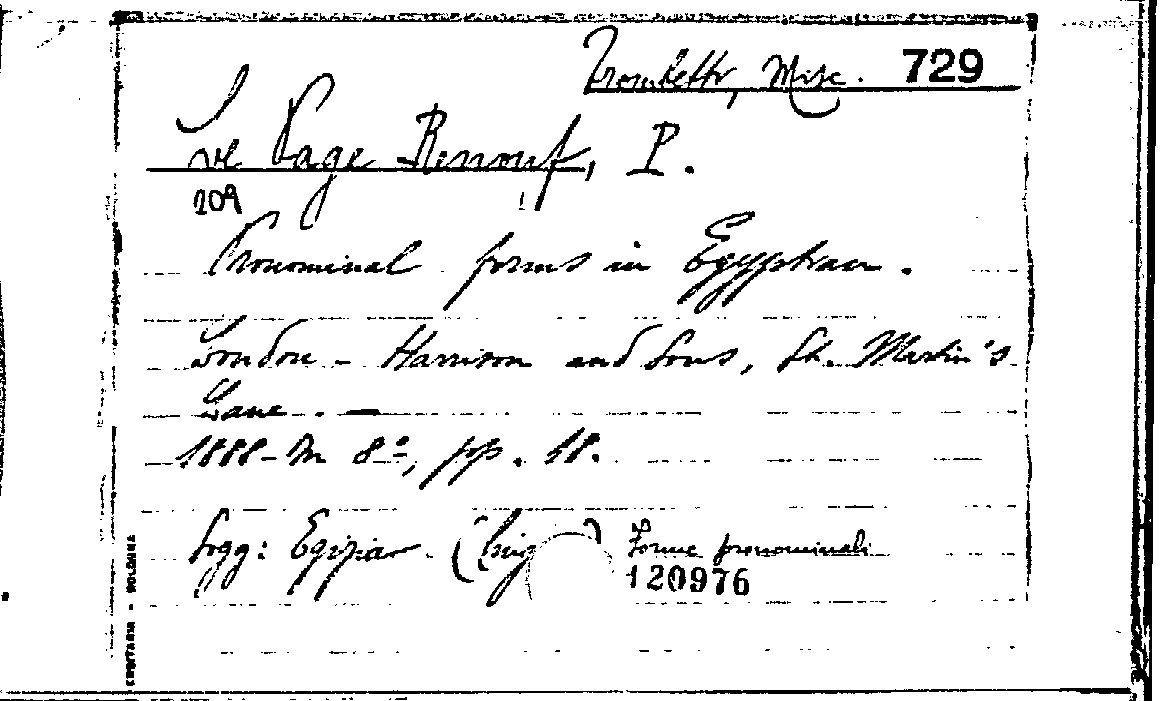 Trombetti, Misc. 729
Le Page Renouf, P.
209
Pronominal forms in Egyptian.
London - Harrison and Sons, St. Martin's
Lane. —
1888 - in 8º, pp. 18.
Sogg: Egizia - (Ling ) Forme pronominali
120976